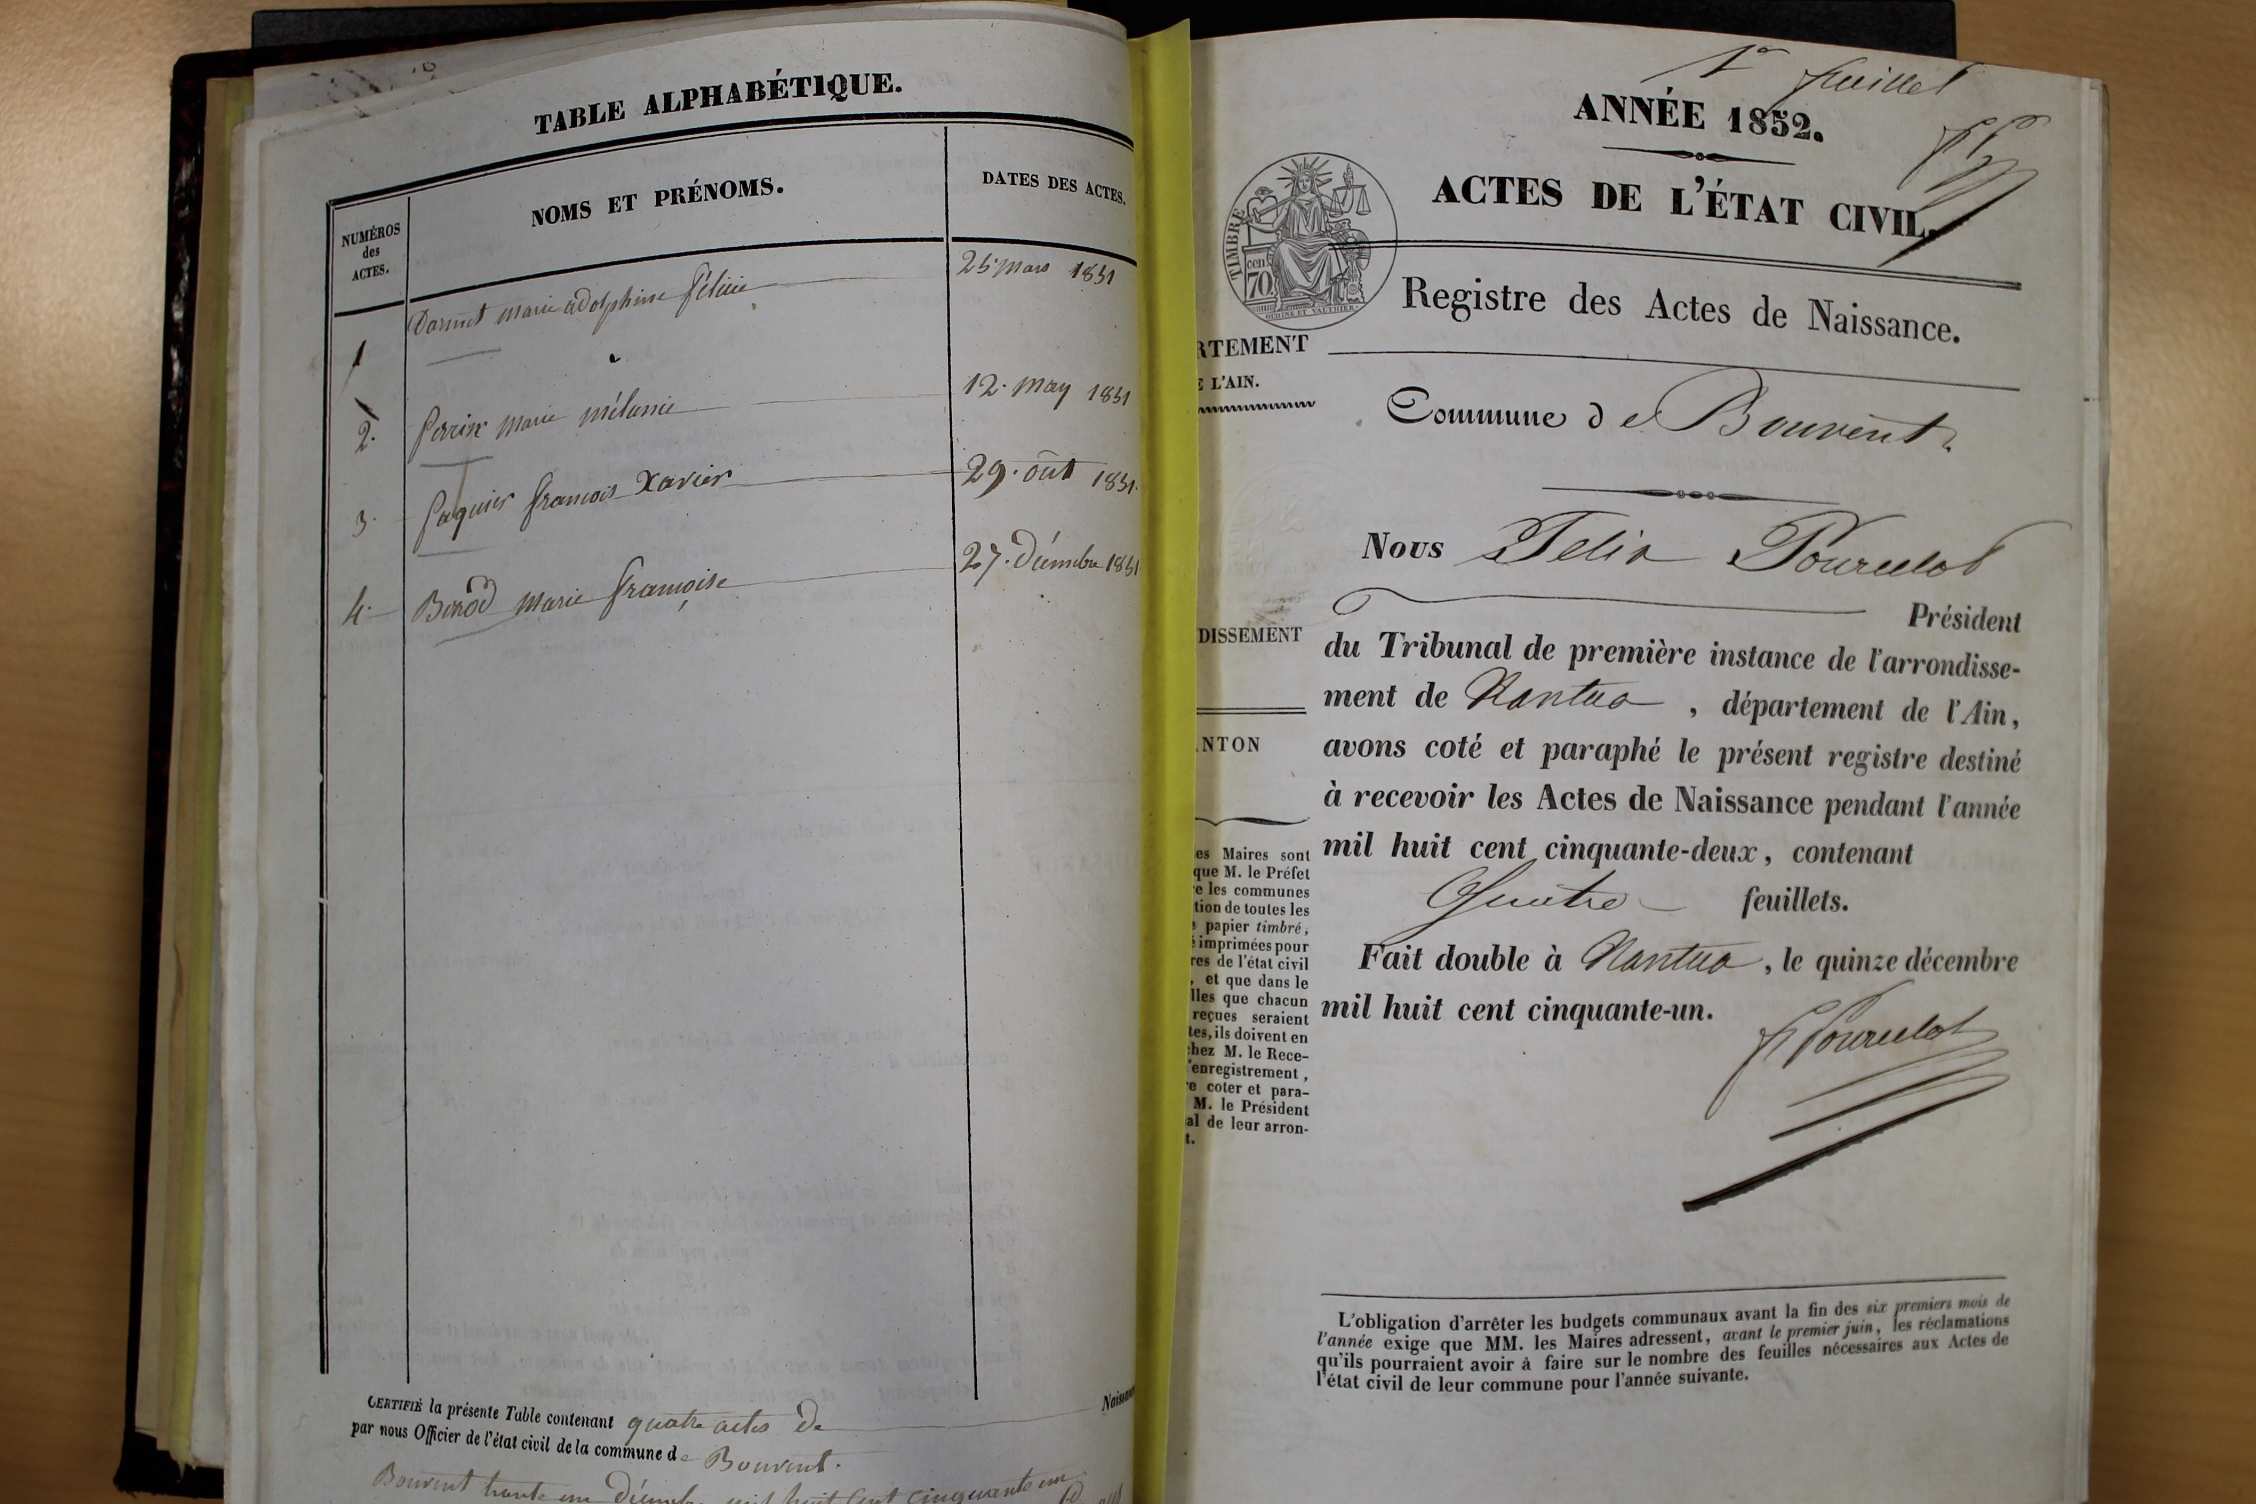 TABLE ALPHABÉTIQUE.
NUMÉROS
des
ACTES.
NOMS ET PRÉNOMS.
DATES DES ACTES.
1 marie adolphine félicie 25 mars 1851
2. perrin marie mélanie 12. may 1851
3. paquier françois Xavier 29. oût 1851.
4. Benod marie françoise 27. Décembre 1851
CERTIFIÉ la présente Table contenant quatre actes de Naissance
par nous Officier de l'état civil de la commune de Bouvent.
Bouvent trente un Décembre mil huit cent cinquante un
1er feuillet
ANNÉE 1852.
ACTES DE L'ÉTAT CIVIL.
TIMBRE
70 cen.
Registre des Actes de Naissance.
RTEMENT
E L'AIN.
Commune de Bouvent
Nous Felix Pourcelot
Président
du Tribunal de première instance de l'arrondisse-
ment de Nantua, département de l'Ain,
avons coté et paraphé le présent registre destiné
à recevoir les Actes de Naissance pendant l'année
mil huit cent cinquante-deux, contenant
Quatre feuillets.
Fait double à Nantua, le quinze décembre
mil huit cent cinquante-un.
F Pourcelot
DISSEMENT
ANTON
es Maires sont
que M. le Préfet
e les communes
tion de toutes les
papier timbré,
é imprimées pour
res de l'état civil
, et que dans le
lles que chacun
reçues seraient
tes, ils doivent en
chez M. le Rece-
'enregistrement,
re coter et para-
M. le Président
al de leur arron-
t.
L'obligation d'arrêter les budgets communaux avant la fin des six premiers mois de
l'année exige que MM. les Maires adressent, avant le premier juin, les réclamations
qu'ils pourraient avoir à faire sur le nombre des feuilles nécessaires aux Actes de
l'état civil de leur commune pour l'année suivante.